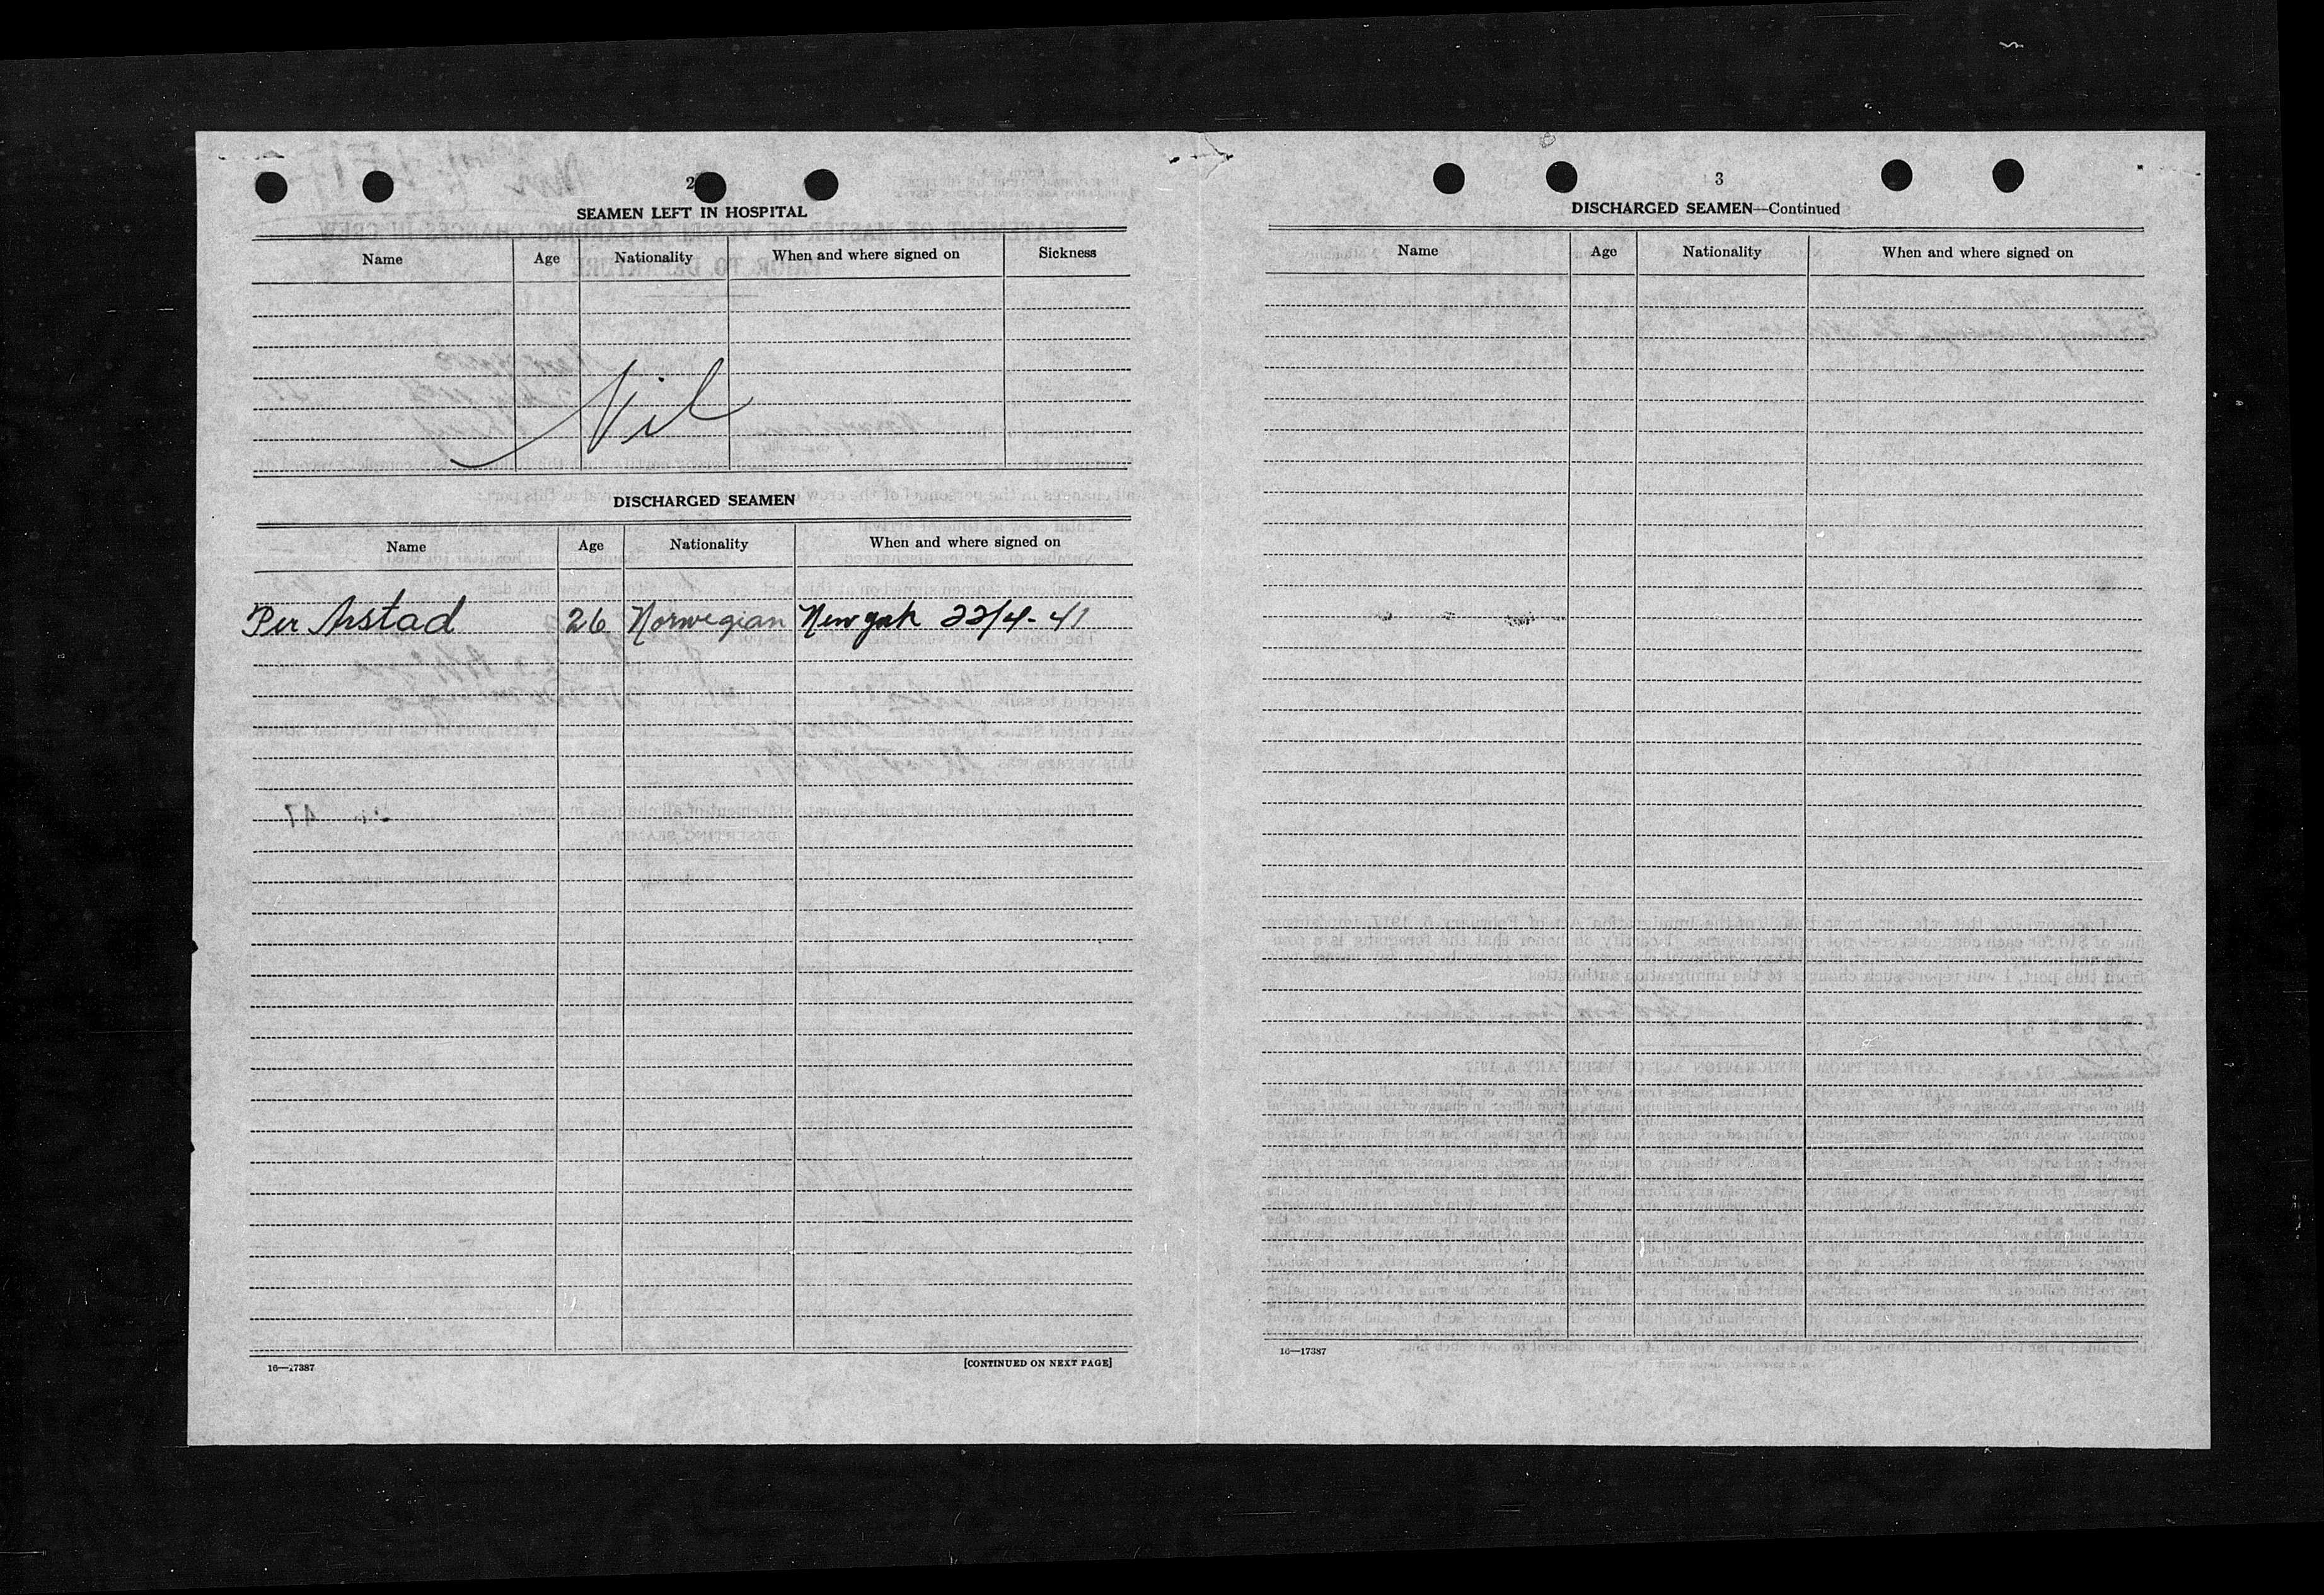 2
SEAMEN LEFT IN HOSPITAL
Name Age Nationality When and where signed on Sickness
Nil
DISCHARGED SEAMEN
Name Age Nationality When and where signed on
Per Arstad 26 Norwegian New york 22/4-41
16—17387 [CONTINUED ON NEXT PAGE]
3
DISCHARGED SEAMEN—Continued
Name Age Nationality When and where signed on
16—17387